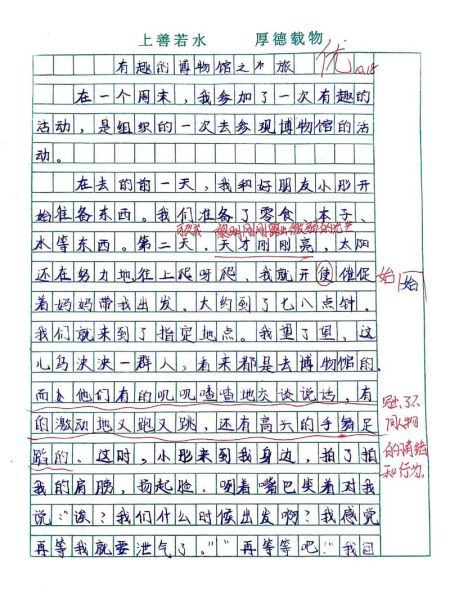 上善若水 厚德载物
有趣的博物馆之旅 优 10.18
在一个周末，我参加了一次有趣的
活动，是组织的一次去参观博物馆的活
动。
在去的前一天，我和好朋友小彤开
始准备东西。我们准备了零食、本子、
水等东西。第二天，天才刚刚亮，太阳
还在努力地往上爬呀爬，我就开使催促
始 始
着妈妈带我出发。大约到了七八点钟，
我们就来到了指定地点。我望了望，这
儿乌泱泱一群人，看来都是去博物馆的。
而且他们有的叽叽喳喳地交谈说话，有
的激动地又跑又跳，还有高兴的手舞足
蹈的。这时，小彤来到我身边，拍了拍
写出了不
同人物
的情绪
和行为。
我的肩膀，扬起脸，咧着嘴巴笑着对我
说：“诶？我们什么时候出发啊？我感觉
再等我就要泄气了。”“再等等吧！”我回